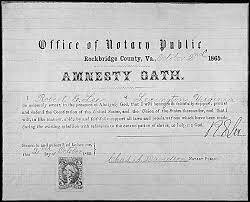 Office of Notary Public,
Rockbridge County, Va., October 2d 1865.
AMNESTY OATH.
I Robert E. Lee of Lexington Virginia
do solemnly swear, in the presence of Almighty God, that I will henceforth faithfully support, protect
and defend the Constitution of the United States, and the Union of the States thereunder, and that I
will, in like manner, abide by and faithfully support all laws and proclamations which have been made during
the existing rebellion with reference to the emancipation of slaves, so help me God.
R E Lee
Sworn to and
this 2d October
Notary Public